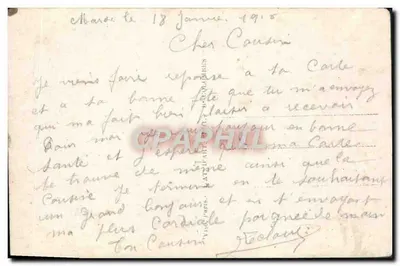 le 18 Janvier 19
Cher Cousin
Je viens faire reponse a ta Carte
et a ta bonne fête que tu m'a envoyez
qui ma fait bien plaisir a recevoir
Pour moi toujours en bonne
santé et j'espère que ma Carte
te trouve de même ainsi que la
Cousine Je termine en te souhaitant
un grand bonjour et en t'envoyant
ma plus Cordiale poignée de main
Ton Cousin
CPAPHIL.COM